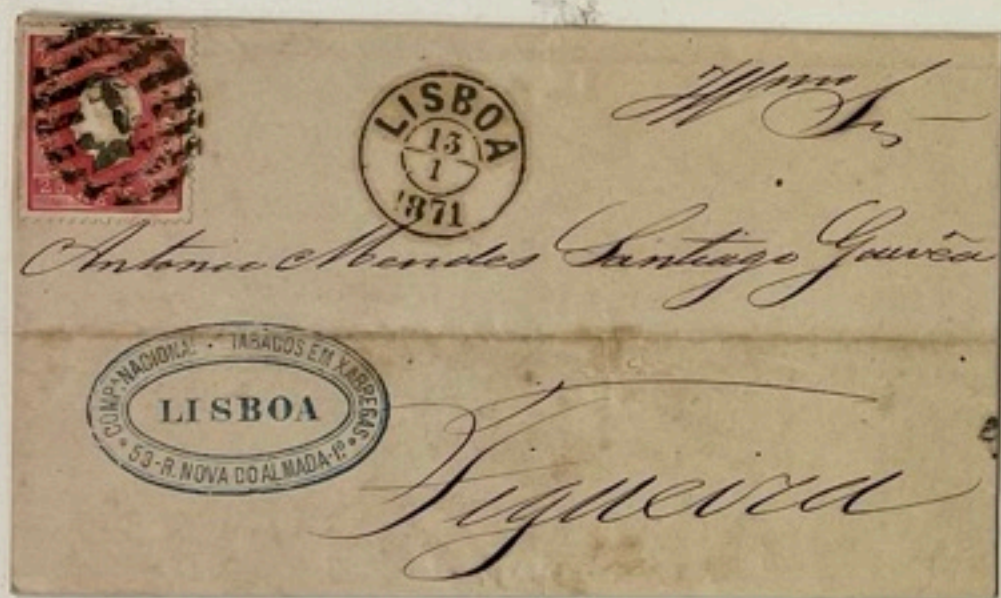 Illmo Sr
LISBOA
13
1
1871
Antonio Mendes Santiago Gouvêa
COMPª NACIONAL · TABACOS EM XABREGAS
LISBOA
53-R. NOVA DO ALMADA-1º
Figueira
25